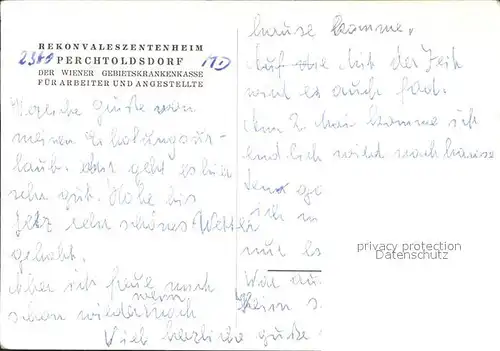 REKONVALESZENTENHEIM
2380 PERCHTOLDSDORF
DER WIENER GEBIETSKRANKENKASSE
FÜR ARBEITER UND ANGESTELLTE
Herzliche Grüße von
meinen Erholungsur-
laub. geht es hier
sehr gut. Habe bis
jetz sehr schönes Wetter
gehabt.
Aber ich freue mich
schon wieder wenn
nach
Viele herzliche Grüße
hause komme.
Auf die Mit der Zeit
wird es auch fad.
Am 2. Mai komme ich
endlich wied nachhause
ich
nur es
privacy protection
Datenschutz